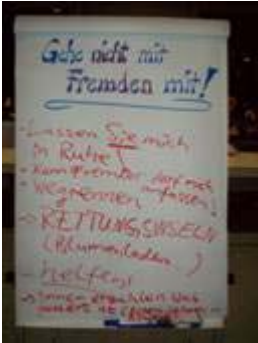 Gehe nicht mit
Fremden mit!
- Lassen Sie mich
in Ruhe!
- Kein Fremder darf mich
anfassen!
- Wegrennen
-> RETTUNGSINSELN
(Blumenladen )
- helfen!
- immer erzählen was